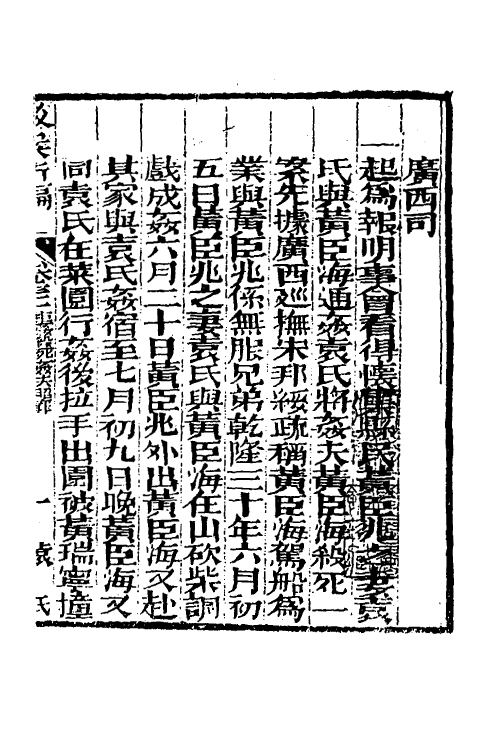 廣西司
一起為報明事會看得懷集縣民黃臣兆之妻袁
氏與黃臣海通姦袁氏將姦夫黃臣海殺死一
案先據廣西巡撫宋邦綏疏稱黃臣海駕船為
業與黃臣兆係無服兄弟乾隆三十年六月初
五日黃臣兆之妻袁氏與黃臣海在山砍柴調
戲成姦六月二十日黃臣兆外出黃臣海又赴
其家與袁氏姦宿至七月初九日晚黃臣海又
同袁氏在菜園行姦後拉手出園被黃瑞寧撞
一 袁氏